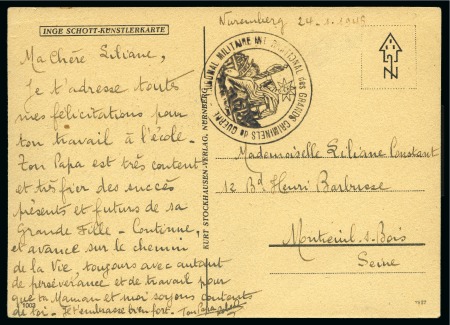 INGE SCHOTT-KÜNSTLERKARTE
Nuremberg 24-1-1946
Ma Chère Liliane,
Je t'adresse toutes
mes félicitations pour
ton travail à l'école.
Ton Papa est très content
et très fier des succès
présents et futurs de sa
Grande Fille - Continue,
et avance sur le chemin
de la Vie, toujours avec autant
de persévérance et de travail pour
que ta Maman et moi soyons contents
de toi. Je t'embrasse bien fort. Ton Papa
1003
KURT STOCKHAUSEN-VERLAG, NÜRNBERG
TRIBUNAL MILITAIRE INTERNATIONAL des GRANDS CRIMINELS de GUERRE
N
Mademoiselle Liliane Constant
12 Bd Henri Barbusse
Montreuil-s-Bois
Seine